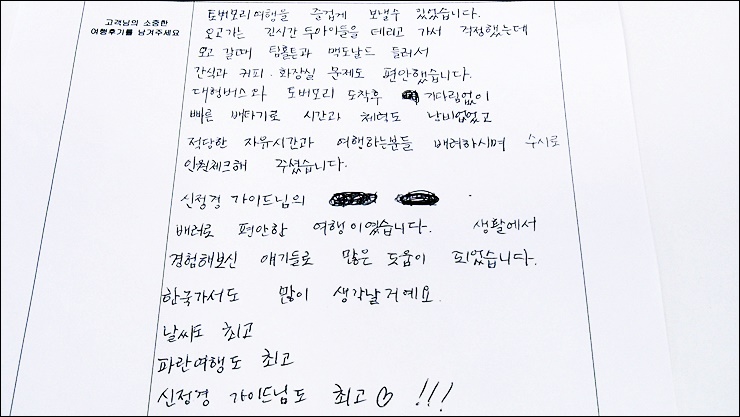 고객님의 소중한
여행후기를 남겨주세요
토버모리여행을 즐겁게 보낼수 있었습니다.
오고가는 긴시간 두아이들을 데리고 가서 걱정했는데
오고 갈때 팀홀튼과 맥도날드 들러서
간식과 커피. 화장실 문제도 편안했습니다.
대형버스와 토버모리 도착후 기다림없이
빠른 배타기로 시간과 체력도 낭비없었고
적당한 자유시간과 여행하는분들 배려하시며 수시로
인원체크해 주셨습니다.
신정경 가이드님의
배려로 편안한 여행이였습니다. 생활에서
경험해보신 얘기들로 많은 도움이 되었습니다.
한국가서도 많이 생각날거예요.
날씨도 최고
파란여행도 최고
신정경 가이드님도 최고♡ !!!